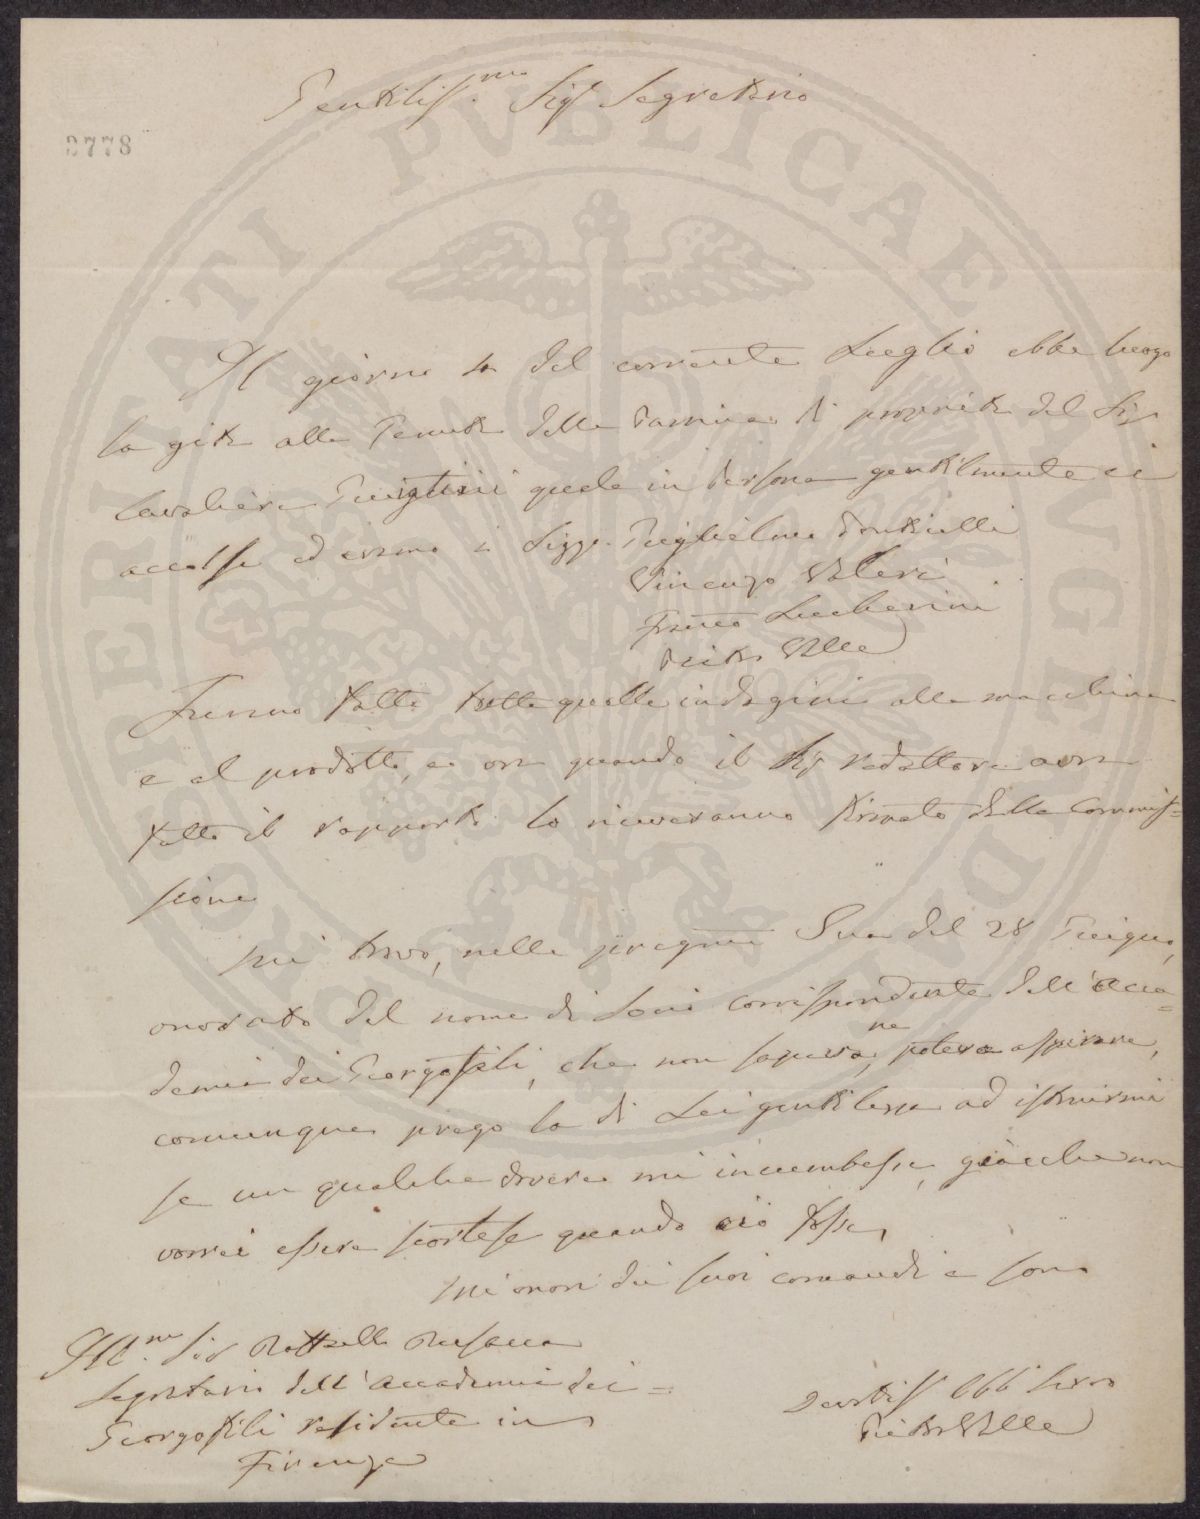 Gentiliss.mo Sigr Segretario
2778
Il giorno 10 del corrente Luglio ebbe luogo
la gita alla Tenuta della di proprietà del Sigr
Cavaliere quale in persona gentilmente ci
accolse ed erano i Sigg. Guglielmo
Vincenzo Valeri
Franco Luchesini
Pietro Valle
Furono fatte tutte quelle indagini alla macchina
e al prodotto, e ora quando il Sigr redattore avrà
fatto il rapporto lo riceveranno firmato dalla Commis=
sione
Mi trovo, nella pregma Sua del 28 Giugno,
onorato del nome di Socio corrispondente dell'Acca=
demia dei Georgofili, che non sapeva, ne poteva aspirare,
comunque prego la di Lei gentilezza ad istruirmi
se un qualche dovere mi incumbesse, giacche non
vorrei essere scortese quando ciò fosse,
Mi onori dei suoi comandi e sono
Ill.mo Sigr Raffaello Busacca
Segretario dell'Accademia dei=
Georgofili residente in
Firenze
Devotiss Obb Servo
Pietro Valle
SPERITATI PVBLICAE AVGENDAE